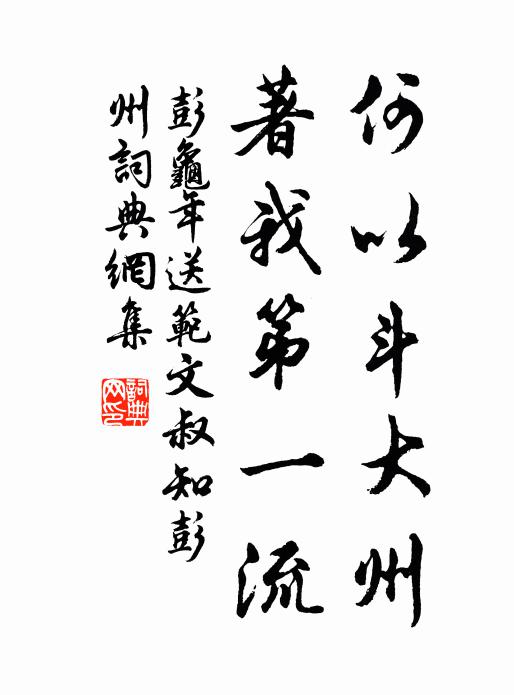 何以斗大州
著我第一流
彭龜年送範文叔知彭
州詞典網集
詞典網印